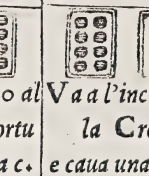 o al
ortu
a c.
V a a l'inc
la Cro
e caua una